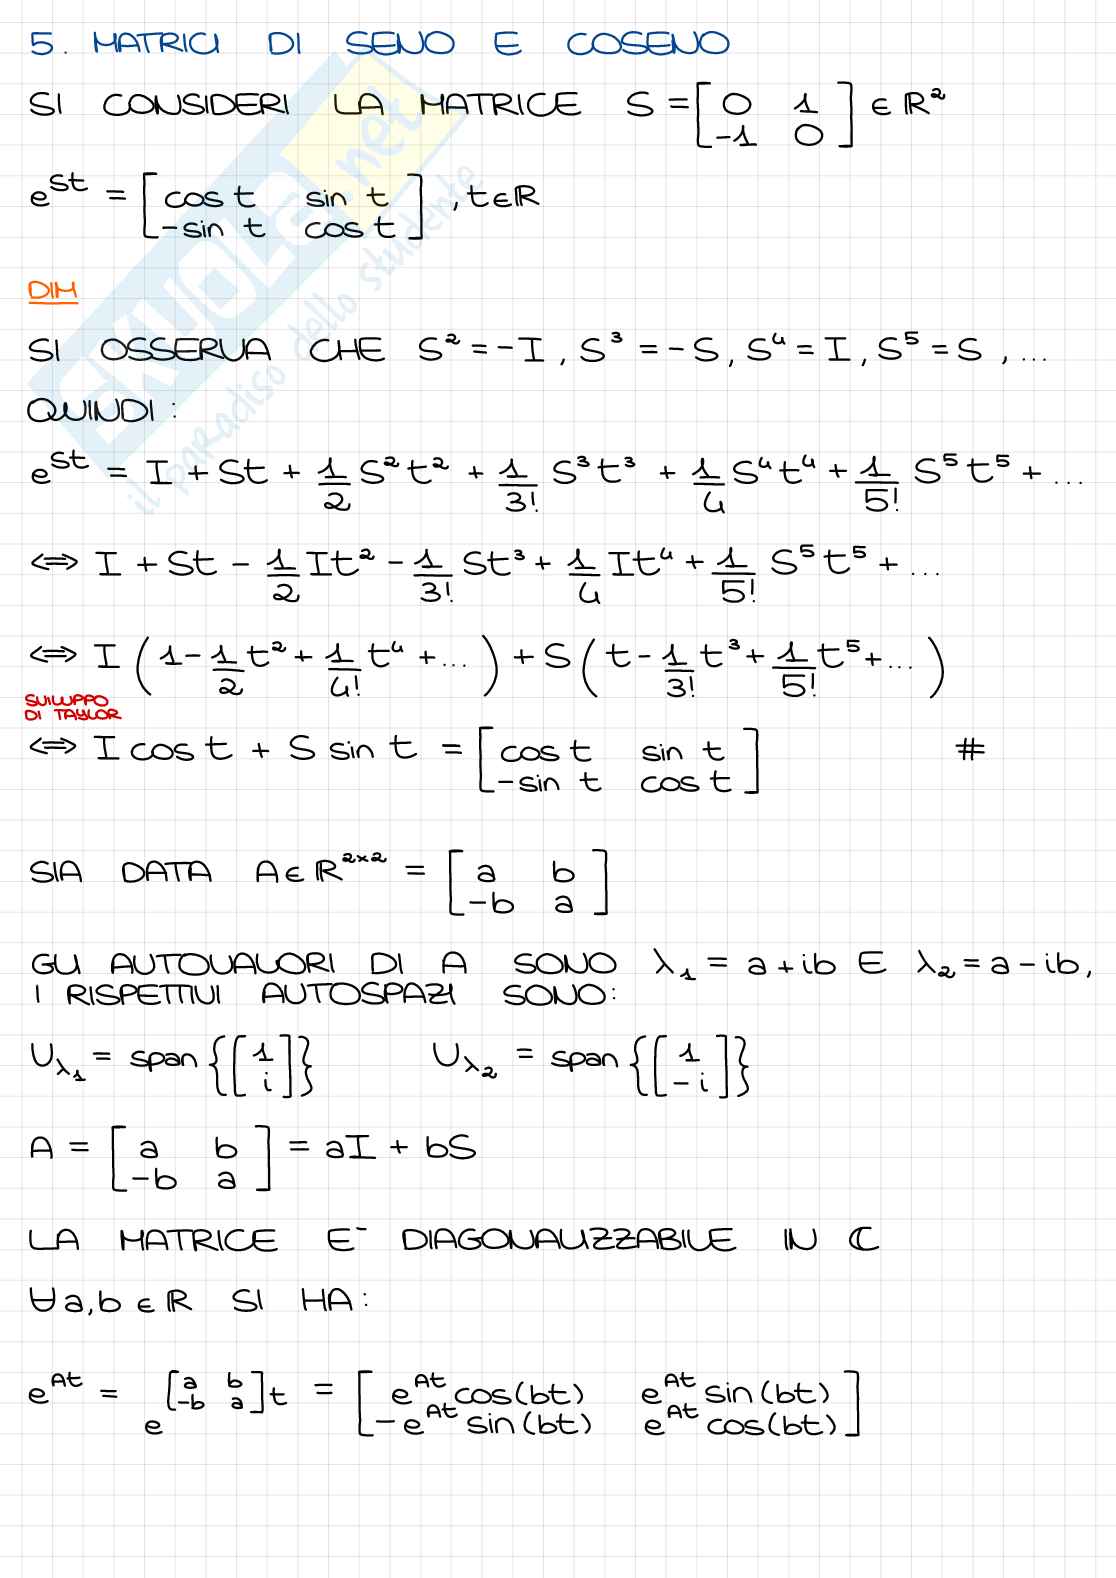 5. MATRICI DI SENO E COSENO
SI CONSIDERI LA MATRICE S = [0 1; -1 0] ∈ ℝ²
e^St = [cos t sin t; -sin t cos t], t∈ℝ
DIM
SI OSSERVA CHE S² = -I, S³ = -S, S⁴ = I, S⁵ = S, ...
QUINDI:
e^St = I + St + 1/2 S²t² + 1/3! S³t³ + 1/4 S⁴t⁴ + 1/5! S⁵t⁵ + ...
⟺ I + St - 1/2 It² - 1/3! St³ + 1/4 It⁴ + 1/5! S⁵t⁵ + ...
⟺ I (1 - 1/2 t² + 1/4! t⁴ + ...) + S (t - 1/3! t³ + 1/5! t⁵ + ...)
SVILUPPO
DI TAYLOR
⟺ I cos t + S sin t = [cos t sin t; -sin t cos t] #
SIA DATA A∈ℝ^2×2 = [a b; -b a]
GLI AUTOVALORI DI A SONO λ₁ = a+ib E λ₂ = a-ib,
I RISPETTIVI AUTOSPAZI SONO:
U_λ₁ = span {[1; i]} U_λ₂ = span {[1; -i]}
A = [a b; -b a] = aI + bS
LA MATRICE E' DIAGONALIZZABILE IN ℂ
∀a,b∈ℝ SI HA:
e^At = e^[a b; -b a]t = [e^At cos(bt) e^At sin(bt); -e^At sin(bt) e^At cos(bt)]
SKUOLA.net
il paradiso dello studente